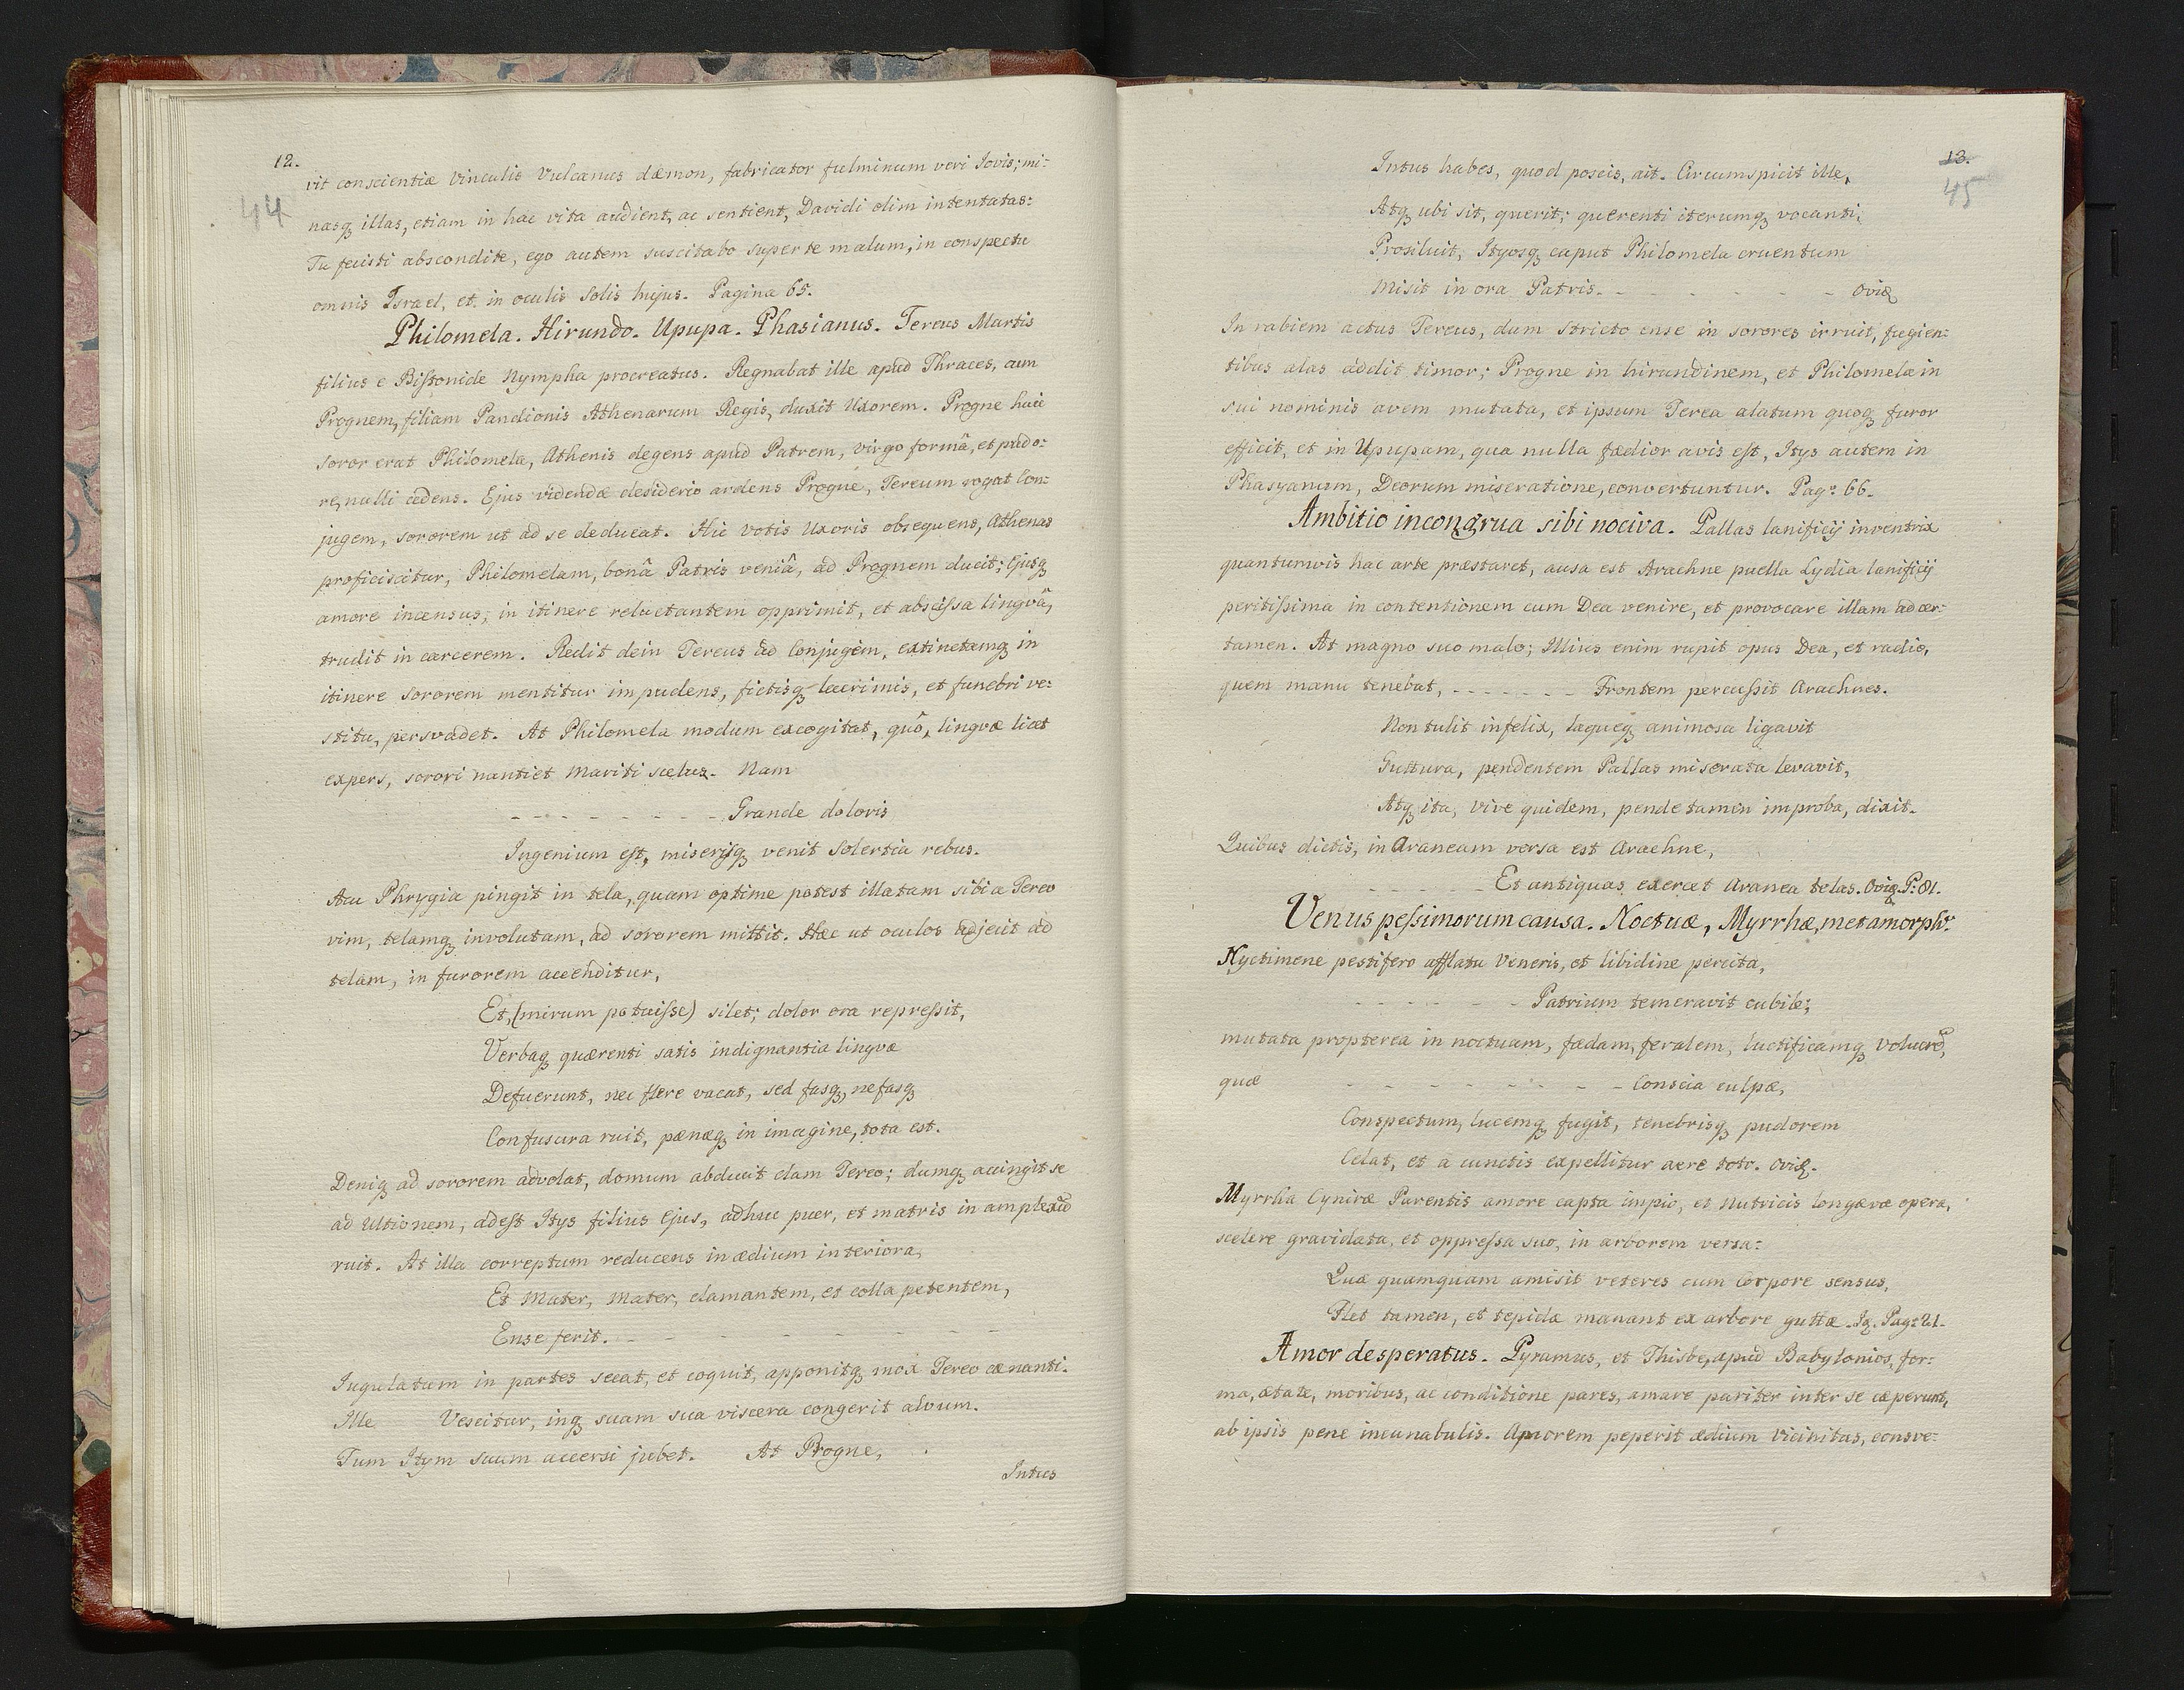 12.
44
rit conscientiæ vinculis Vulcanus dæmon, fabricator fulminum veri Jovis; mi-
nasq illas, etiam in hac vita audient, ac sentient, Davidi olim intentatas:
Tu fecisti abscondite, ego autem suscitabo super te malum, in conspectu
omnis Israel, et in oculis Solis hujus. Pagina 65.
Philomela. Hirundo. Upupa. Phasianus. Tereus Martis
filius e Bistonide Nympha procreatus. Regnabat ille apud Thraces, cum
Prognem, filiam Pandionis Athenarum Regis, duxit Uxorem. Progne huic
soror erat Philomela, Athenis degens apud Patrem, virgo formâ, et pudo-
re, nulli cedens. Ejus videndæ desiderio ardens Progne, Tereum rogat Con-
jugem, sororem ut ad se deducat. Hic votis Uxoris obsequens, Athenas
proficiscitur, Philomelam, bonâ Patris veniâ, ad Prognem ducit; Ejusq
amore incensus, in itinere reluctantem opprimit, et abscissa linguâ,
trudit in carcerem. Redit dein Tereus ad Conjugem, extinctamq in
itinere sororem mentitur impudens, fictisq lacrimis, et funebri ve-
stitu, persvadet. At Philomela modum excogitat, quô, lingvæ licet
expers, sorori nuntiet Mariti scelus. Nam
- - - - - - - - Grande doloris
Ingenium est, miserisq venit Solertia rebus.
Acu Phrygia pingit in tela, quam optime potest illatam sibi a Tereo
vim, telamq involutam, ad sororem mittit. Hæc ut oculos adjecit ad
telam, in furorem accenditur,
Et, (mirum potuisse) silet; dolor ora repressit,
Verbaq quærenti satis indignantia lingvæ
Defuerunt, nec flere vacat, sed fasq, nefasq
Confusura ruit, pænæq in imagine, tota est.
Deniq ad sororem advolat, domum abducit clam Tereo; dumq accingit se
ad Ultionem, adest Itys filius Ejus, adhuc puer, et matris in amplexũ
ruit. At illa correptum reducens in ædium interiora,
Et Mater, Mater, clamantem, et colla petentem,
Ense ferit. - - - - - - - -
Jugulatum in partes secat, et coquit, apponitq mox Tereo cænanti.
Ille Vescitur, inq suam sua viscera congerit alvum.
Tum Itym suum accersi jubet. At Progne,
Intus
13.
45
Intus habes, quod poscis, ait. Circumspicit ille,
Atq ubi sit, querit; querenti iterumq vocanti,
Prosiluit, Ityosq caput Philomela cruentum
Misit in ora Patris. - - - - - - - Ovid
In rabiem actus Tereus, dum stricto ense in sorores irruit, fugien-
tibus alas addit timor; Progne in hirundinem, et Philomela in
sui nominis avem mutata, et ipsum Terea alatum quoq furor
efficit, et in Upupam, qua nulla fædior avis est, Itys autem in
Phasyanum, Deorum miseratione, convertuntur. Pag: 66.
Ambitio incongrua sibi nociva. Pallas lanificij inventrix
quantumvis hac arte præstaret, ausa est Arachne puella Lydia lanificij
peritissima in contentionem cum Dea venire, et provocare illam ad cer-
tamen. At magno suo malo; Illius enim rupit opus Dea, et radio,
quem manu tenebat, - - - - - - Frontem percussit Arachnes.
Non tulit infelix, laqueq animosa ligavit
Guttura, pendentem Pallas miserata levavit,
Atq ita, vive quidem, pende tamen improba, dixit.
Quibus dictis, in Araneam versa est Arachne,
- - - - - Et antiquas exercet Aranea telas. Ovid. P: 81.
Venus pessimorum causa. Noctuæ, Myrrhæ, metamorph:
Nyctimene pestifero afflatu Veneris, et libidine percita,
- - - - - - Patrium temeravit cubile;
mutata propterea in noctuam, fædam, feralem, luctificamq volucrẽ,
quæ - - - - - - - - Conscia culpæ,
Conspectum, lucemq fugit, tenebrisq pudorem
Celat, et a cunctis expellitur aere toto. Ovid.
Myrrha Cyniræ Parentis amore capta impio, et Nutricis longævæ opera,
scelere gravidata, et oppressa suo, in arborem versa:
Quæ quamquam amisit veteres cum Corpore sensus,
Flet tamen, et tepidæ manant ex arbore guttæ. Id. Pag: 21.
Amor desperatus. Pyramus, et Thisbe, apud Babylonios, for-
ma, ætate, moribus, ac conditione pares, amare pariter inter se cæperunt,
ab ipsis pene incunabulis. Amorem peperit ædium vicinitas, consve-